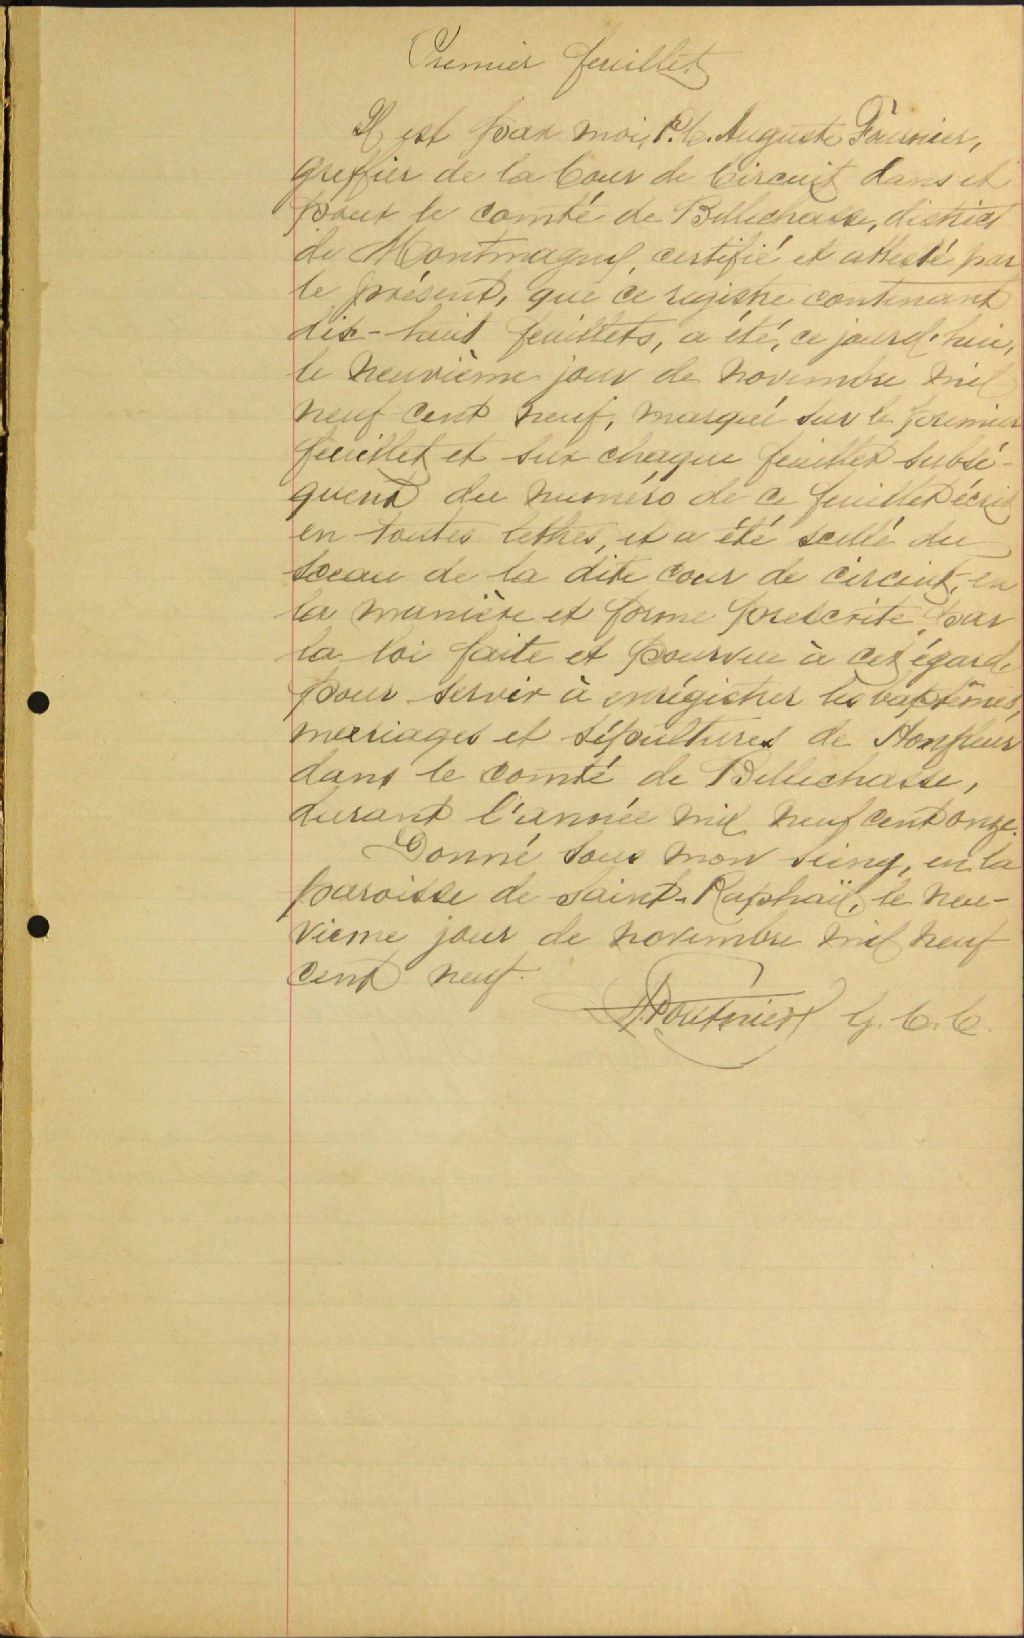 Premier feuillet
Il est par moi, P. C. Auguste Fournier,
greffier de la Cour de Circuit dans et
pour le comté de Bellechasse, district
de Montmagny, certifié et attesté par
le présent, que ce registre contenant
dix-huit feuillets, a été, ce jourd'hui,
le neuvième jour de novembre mil
neuf cent neuf, marqué sur le premier
feuillet et sur chaque feuillet subsé-
quent du numéro de ce feuillet écrit
en toutes lettres, et a été scellé du
sceau de la dite cour de circuit, en
la manière et forme prescrite par
la loi faite et pourvue à cet égard,
pour servir à enrégistrer les baptêmes,
mariages et sépultures de Honfleur
dans le comté de Bellechasse,
durant l'année mil neuf cent onze.
Donné sous mon seing, en la
paroisse de Saint-Raphaël, le neu-
vieme jour de novembre mil neuf
cent neuf.
Fournier G. C. C.